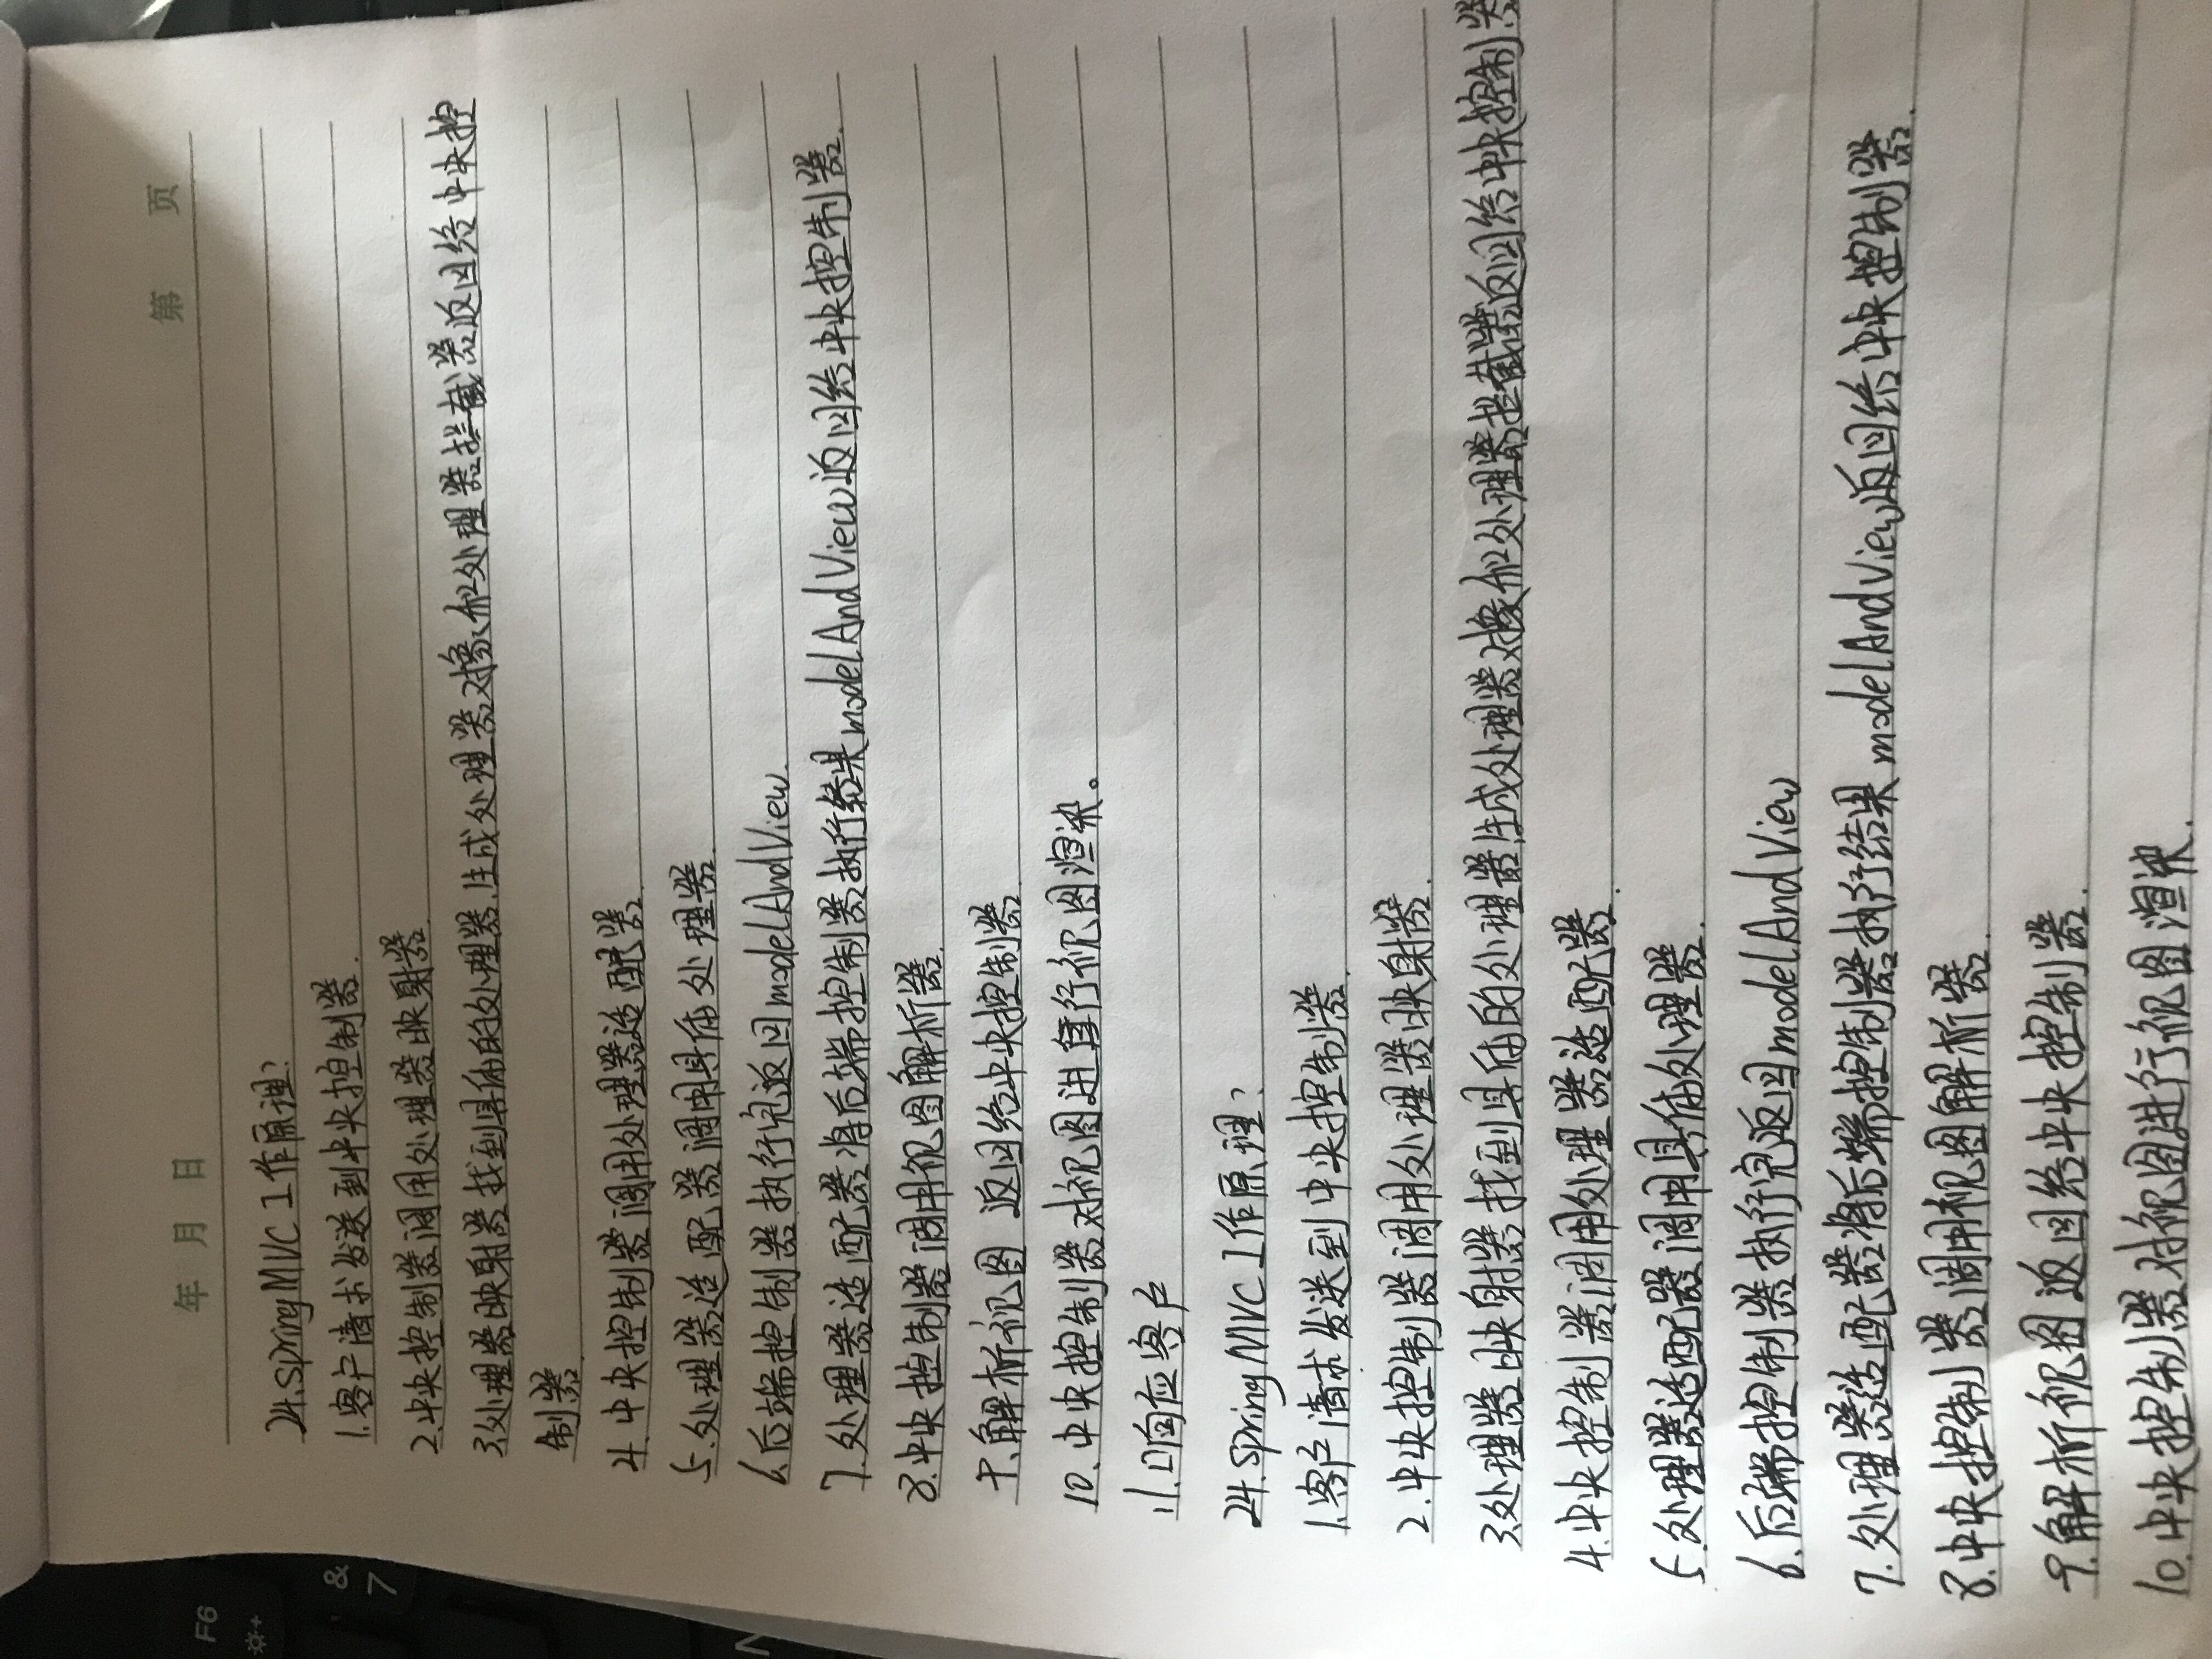 年 月 日 第 页
24.springMVC工作原理?
1.客户请求发送到中央控制器.
2.中央控制器调用处理器映射器.
3.处理器映射器找到具体的处理器.生成处理器对象和处理器拦截器返回给中央控
制器.
4.中央控制器调用处理器适配器.
5.处理器适配器调用具体处理器.
6.后端控制器执行完返回modelAndView.
7.处理器适配器将后端控制器执行结果modelAndView返回给中央控制器.
8.中央控制器调用视图解析器.
9.解析视图 返回给中央控制器.
10.中央控制器对视图进行视图渲染。
11.响应客户
24.springMVC工作原理?
1.客户请求发送到中央控制器.
2.中央控制器调用处理器映射器.
3.处理器映射器找到具体的处理器生成处理器对象和处理器拦截器返回给中央控制器
4.中央控制器调用处理器适配器.
5.处理器适配器调用具体处理器.
6.后端控制器执行完返回modelAndView
7.处理器适配器将后端控制器执行结果modelAndView返回给中央控制器.
8.中央控制器调用视图解析器.
9.解析视图返回给中央控制器.
10.中央控制器对视图进行视图渲染.
F6
&
7
N